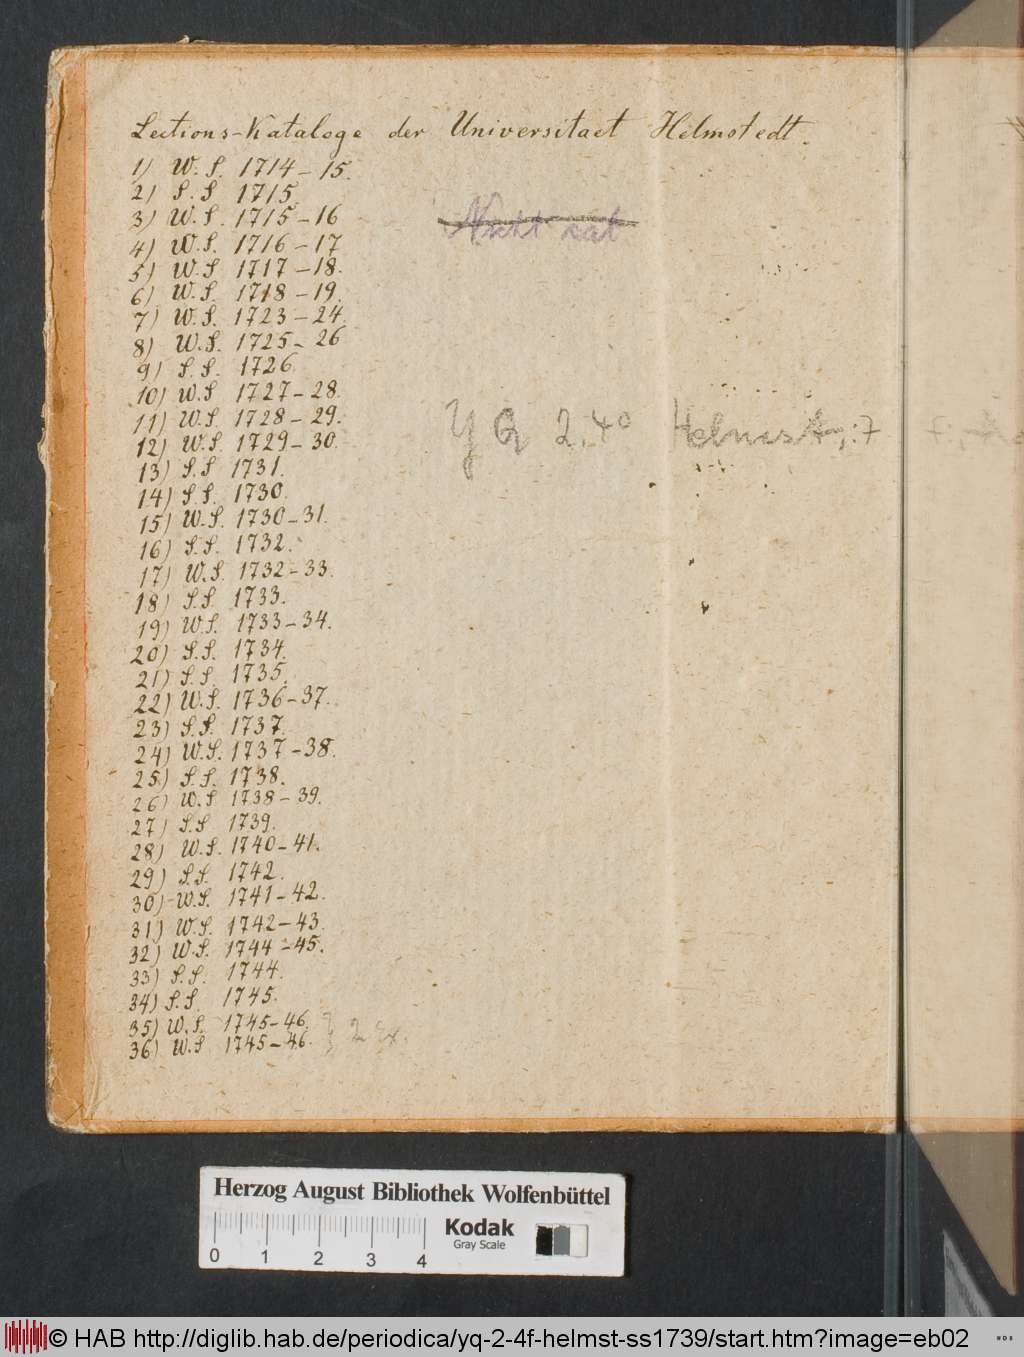 Lections-Kataloge der Universitaet Helmstedt.
1) W. S. 1714-15.
2) S. S 1715.
3) W. S. 1715-16
4) W. S. 1716-17
5) W. S 1717-18.
6) W. S. 1718-19.
7) W. S. 1723-24.
8) W. S. 1725-26
9) S. S. 1726.
10) W. S 1727-28.
11) W. S. 1728-29.
12) W. S. 1729-30.
13) S. S 1731.
14) S. S. 1730.
15) W. S. 1730-31.
16) S. S. 1732.
17) W. S. 1732-33.
18) S. S. 1733.
19) W. S. 1733-34.
20) S. S. 1734.
21) S. S. 1735.
22) W. S. 1736-37.
23) S. S. 1737.
24) W. S. 1737-38.
25) S. S. 1738.
26) W. S 1738-39.
27) S. S 1739.
28) W. S. 1740-41.
29) S. S. 1742.
30) W. S. 1741-42.
31) W. S. 1742-43.
32) W. S. 1744-45.
33) S. S. 1744.
34) S. S. 1745.
35) W. S. 1745-46.
36) W. S 1745-46. } 2 Ex.
Nicht kat
YQ 2.4° Helmst
Herzog August Bibliothek Wolfenbüttel
0 1 2 3 4
Kodak
Gray Scale
© HAB http://diglib.hab.de/periodica/yq-2-4f-helmst-ss1739/start.htm?image=eb02
WDB